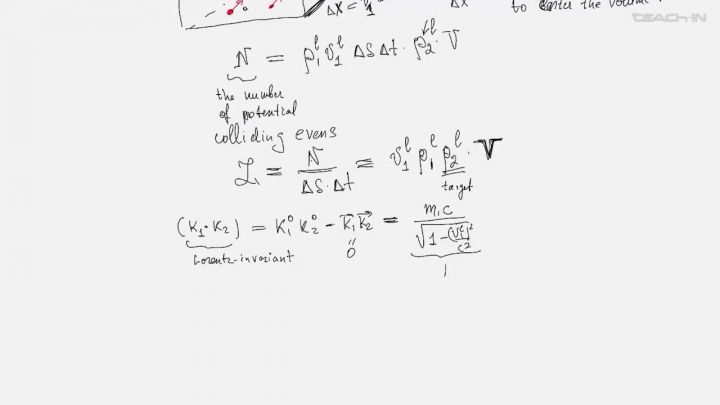 ΔX = V₁ ΔX to enter the volume
TEACH-IN
N = ρ₁ˡ v₁ˡ ΔS Δt · ρ₂ˡ · V
the number
of potential
colliding evens
L = N / (ΔS · Δt) = v₁ˡ ρ₁ˡ ρ₂ˡ · V
target
(K₁·K₂) = K₁⁰ K₂⁰ − K⃗₁K⃗₂ = m₁c / √(1 − (V₁ˡ)²/c²)
Lorentz-invariant
0